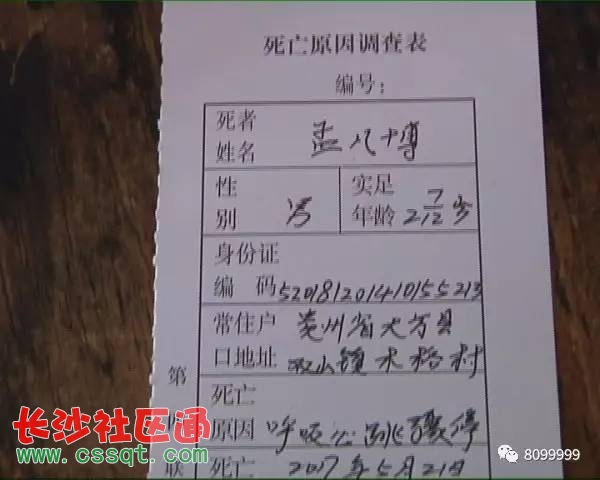 死亡原因调查表
编号：
死者
姓名 孟凡博
性
别 男
实足
年龄 2 7/12 岁
身份证
编 码 520181201410155213
常住户 贵州省大方县
口地址 双山镇木格村
第
死亡
原因 呼吸心跳骤停
联
死亡 2017年5月21日
长沙社区通
www.cssqt.com
8099999